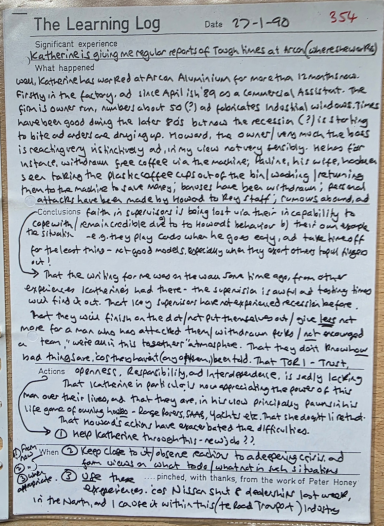 The Learning Log Date 27-1-90 354
Significant experience
Katherine is giving me regular reports of Tough times at Arcon (where she works)
What happened
Well, Katherine has worked at Arcon Aluminium for more than 12 months now.
Firstly in the factory, and since April ish '89 as a Commercial Assistant. The
firm is owner run, numbers about 50 (?) and fabricates Industrial windows. Times
have been good during the later 80s but now the recession (?) is starting
to bite and orders are drying up. Howard, the owner/very much the boss
is reacting very instinctively and, in my view not very sensibly. He has for
instance, withdrawn free coffee via the machine; Pauline, his wife, has been
seen taking the plastic coffee cups out of the bin/washing/returning
them to the machine to save money; bonuses have been withdrawn; personal
attacks have been made by Howard to key staff; rumours abound, and
Conclusions faith in supervisors is being lost via their incapability to
cope with/remain credible due to to Howards behaviour b) their own
the situation. e.g. they play cards when he goes early, and take time off
for the least thing - not good models, especially when they exort others
out!
That the writing for me was on the wall some time ago, from other
experiences Katherine had there - the supervision is awful and testing times
would find it out. That key supervisors have not experienced recession before.
That they will finish on the dot/not put themselves out/give less not
more for a man who has attacked them/withdrawn perks/not encouraged
a "team," "we're all in this together" atmosphere. That they don't know how
bad things are, cos they haven't (any of them) been told. That TORI - Trust,
Actions openness, Responsibility, and Interdependence, is sadly lacking
That Katherine in particular is now appreciating the power of this
man over their lives, and that they are, in his view principally pawns in his
life game of owning - Range Rovers, yachts etc. That she doesn't like that.
That Howards actions have exacerbated the difficulties.
① Help Katherine through this - new job??
① From now
② -"-
③ when appropriate.
When ② Keep close to it/observe reactions to a deepening crisis, and
form views on what to do/what not in such situations
③ Use these ....pinched, with thanks, from the work of Peter Honey
experiences. 'cos Nissan shut dealerships last week,
in the North, and I can use it within this/the Road Transport/Industry